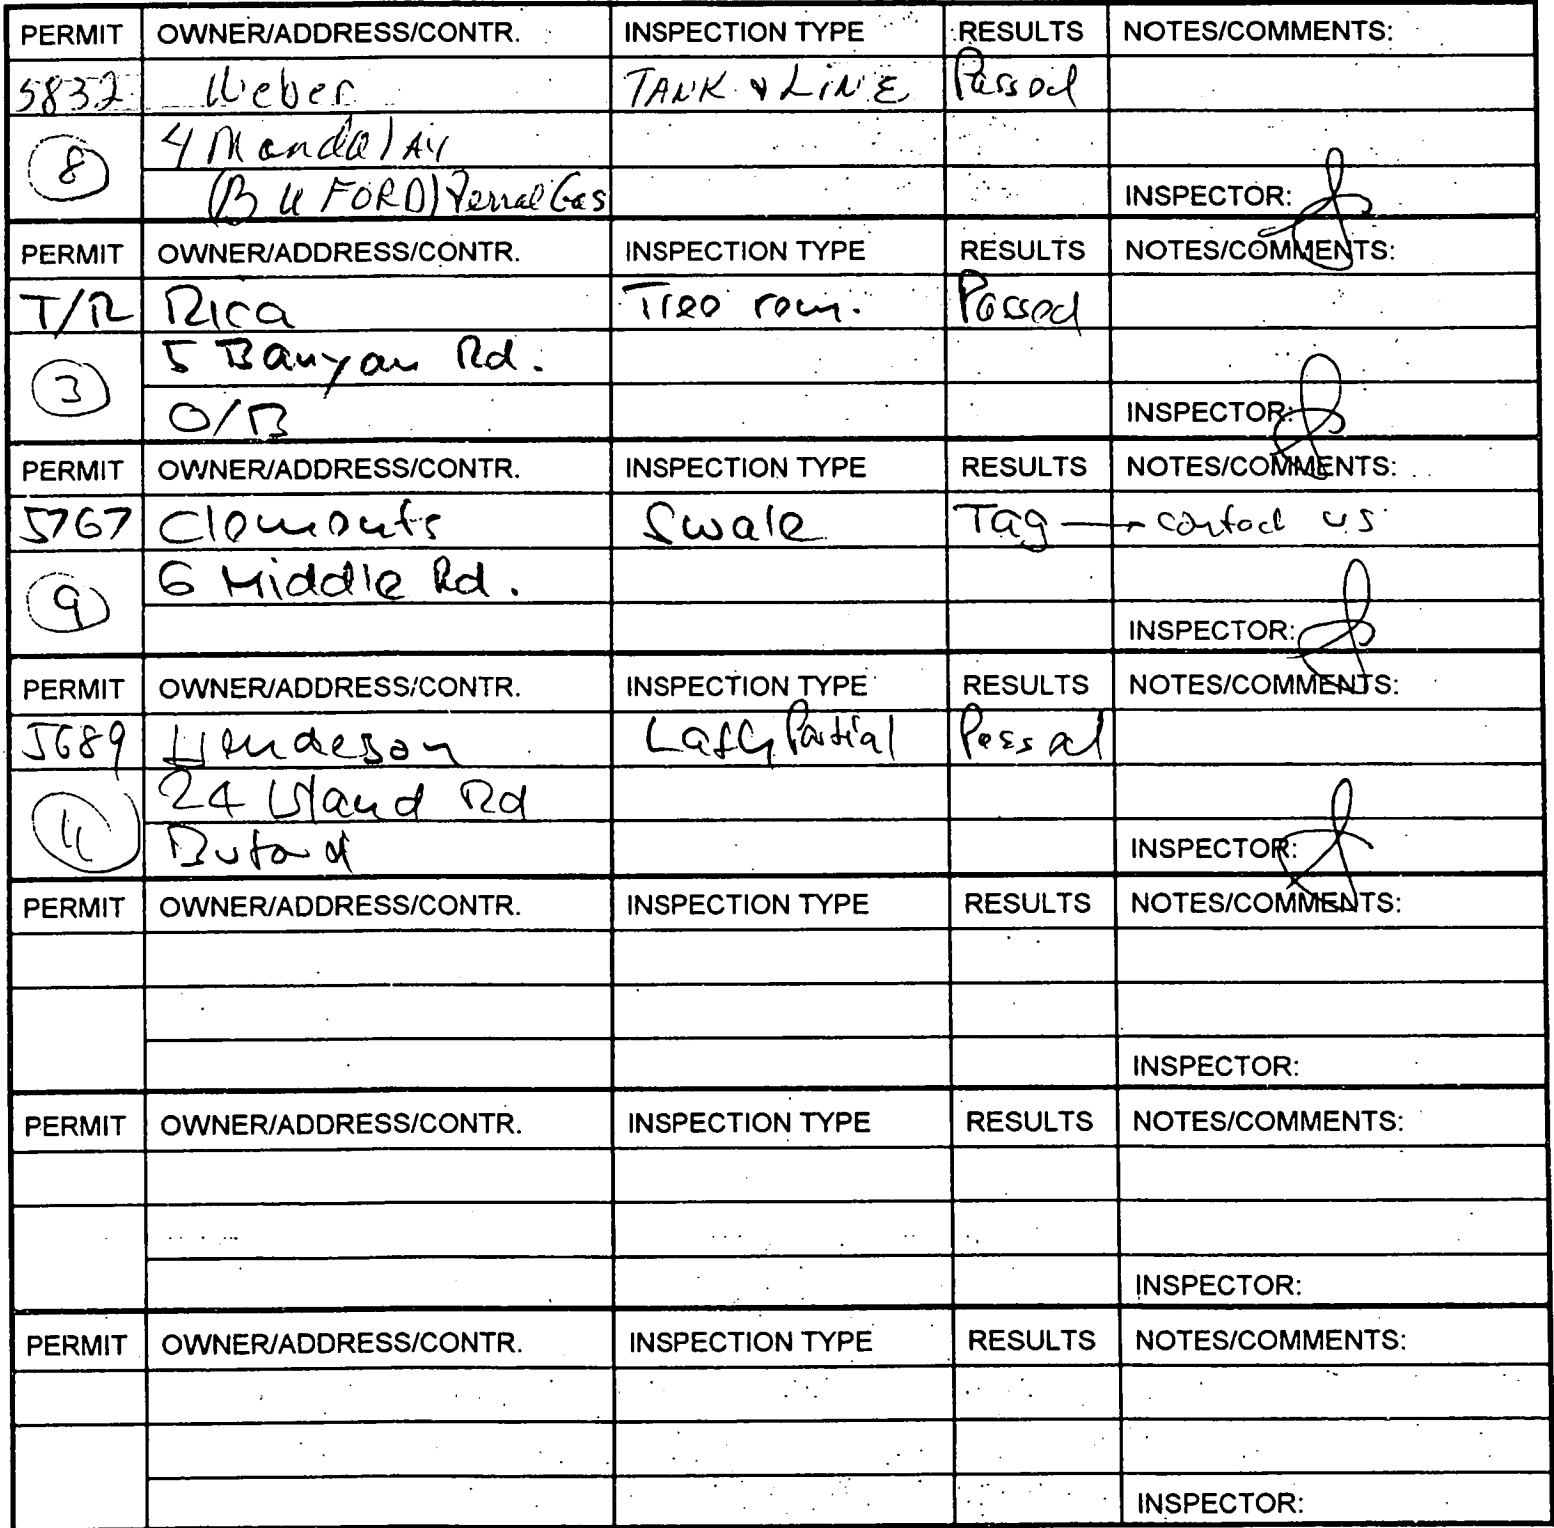 PERMIT OWNER/ADDRESS/CONTR. INSPECTION TYPE RESULTS NOTES/COMMENTS:
5832 Weber TANK & LINE Passed
8 4 Mandalay
(BUFORD) Gas INSPECTOR:
PERMIT OWNER/ADDRESS/CONTR. INSPECTION TYPE RESULTS NOTES/COMMENTS:
T/R Rica Tree Passed
3 5 Banyan Rd.
O/B INSPECTOR:
PERMIT OWNER/ADDRESS/CONTR. INSPECTION TYPE RESULTS NOTES/COMMENTS:
5767 Clements Swale Tag contact us
9 6 Middle Rd.
INSPECTOR:
PERMIT OWNER/ADDRESS/CONTR. INSPECTION TYPE RESULTS NOTES/COMMENTS:
5689 Henderson Lath Partial Passed
24 Island Rd
Buford INSPECTOR:
PERMIT OWNER/ADDRESS/CONTR. INSPECTION TYPE RESULTS NOTES/COMMENTS:
INSPECTOR:
PERMIT OWNER/ADDRESS/CONTR. INSPECTION TYPE RESULTS NOTES/COMMENTS:
INSPECTOR:
PERMIT OWNER/ADDRESS/CONTR. INSPECTION TYPE RESULTS NOTES/COMMENTS:
INSPECTOR: